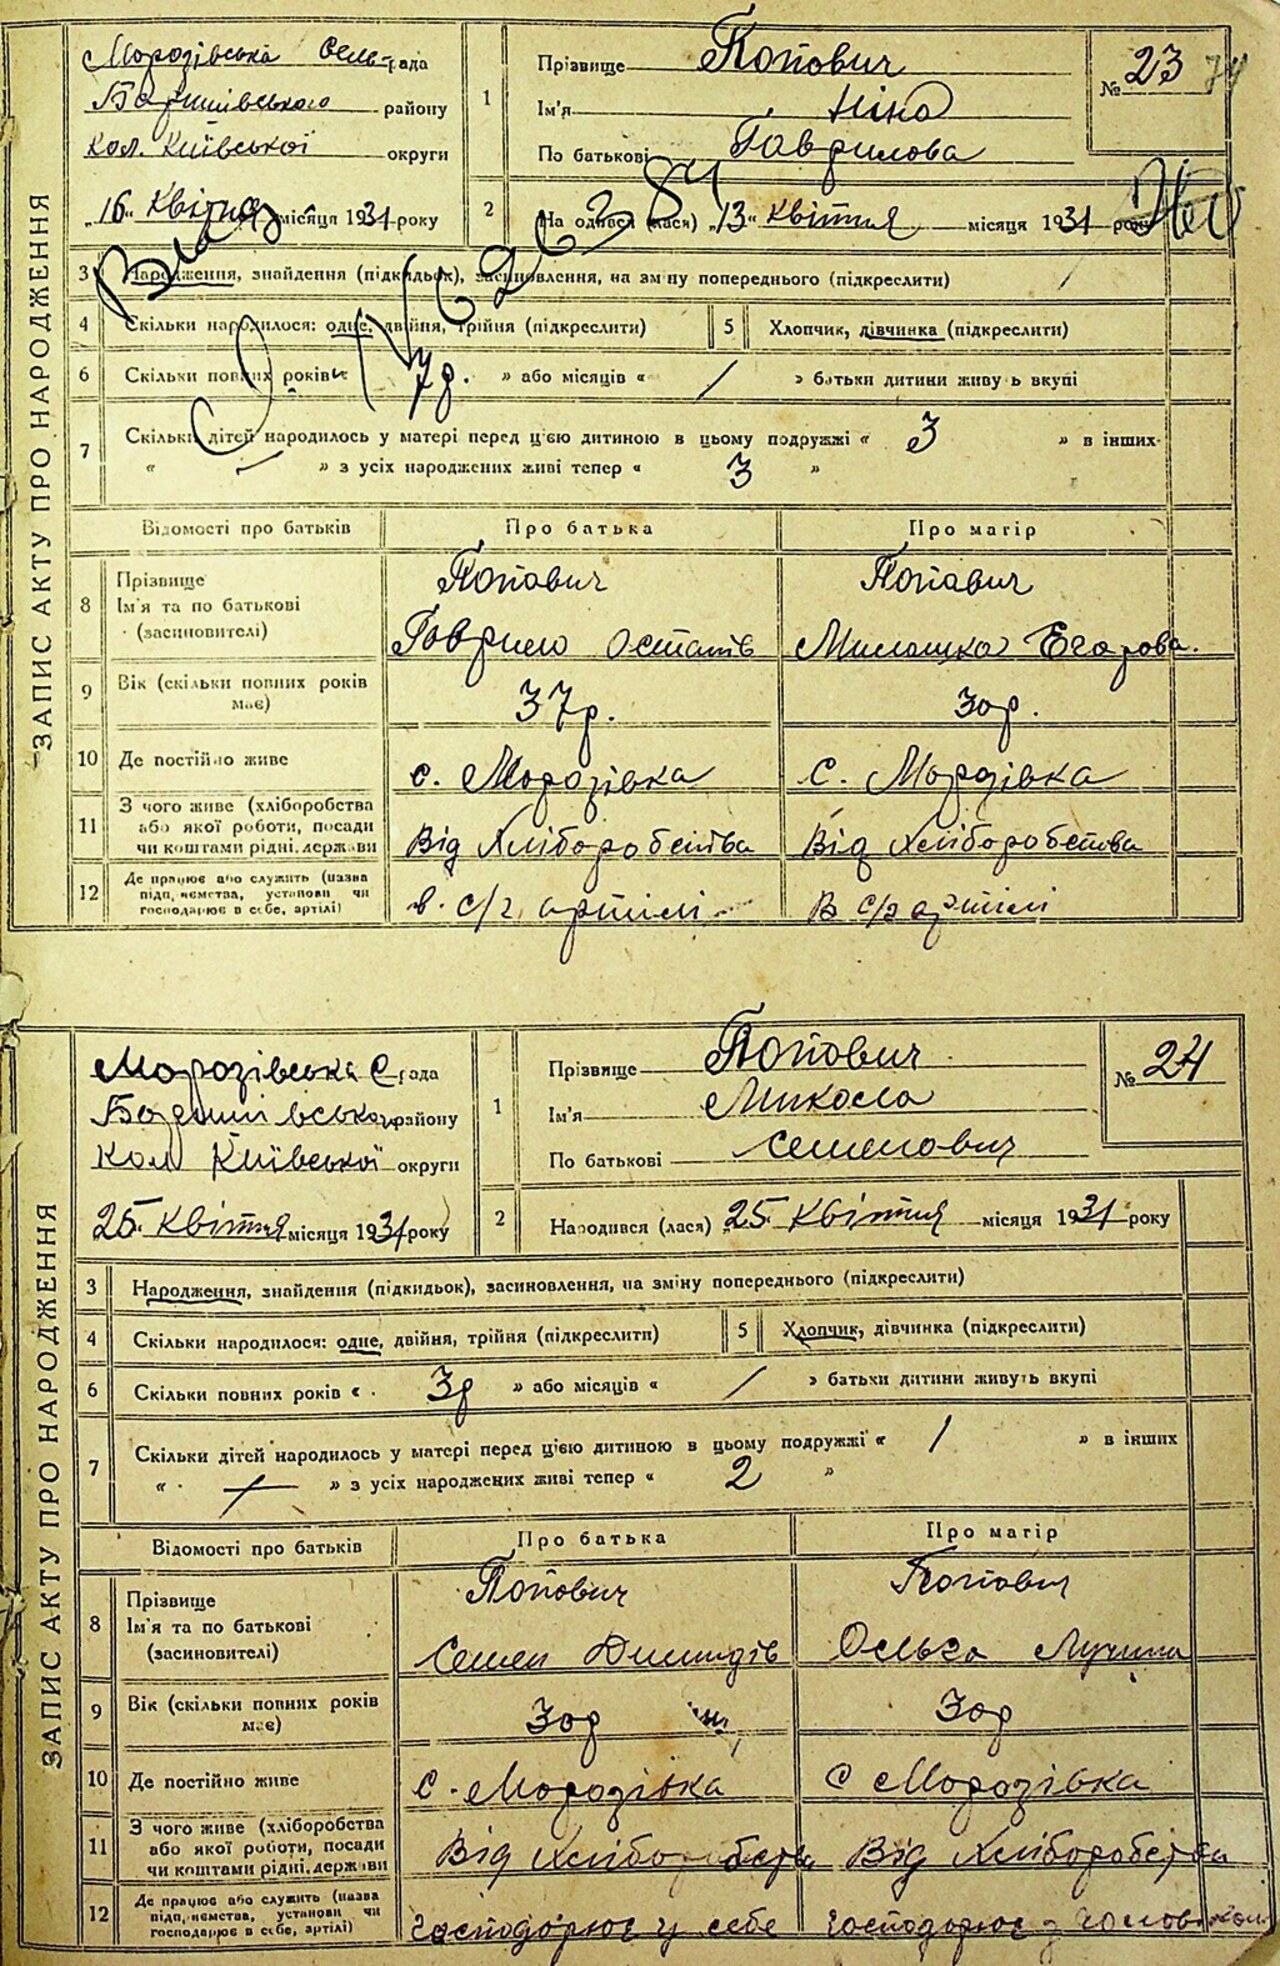 ЗАПИС АКТУ ПРО НАРОДЖЕННЯ
Морозівська сельрада
Баришівського району
кол. Київської округи
„16“ квітня місяця 1931 року
1
Прізвище Попович
Ім'я Ніна
По батькові Гаврилова
№ 23
74
2
На одився (лася) „13“ квітня місяця 1931 року
Видз
284
3 Народження, знайдення (підкидьок), засиновлення, на зміну попереднього (підкреслити)
4 Скільки народилося: одне, двійня, трійня (підкреслити)
5 Хлопчик, дівчинка (підкреслити)
6 Скільки повних років „ 7 р. » або місяців « / » батьки дитини живу ь вкупі
7 Скільки дітей народилось у матері перед цією дитиною в цьому подружжі « 3 » в інших
« — » з усіх народжених живі тепер « 3 »
Відомості про батьків
Про батька
Про матір
8 Прізвище
Ім'я та по батькові
(засиновителі)
Попович
Гаврило Остапів
Попавич
Милашка Егарова.
9 Вік (скільки повних років має)
37р.
30р.
10 Де постійно живе
с. Морозівка
с. Морозівка
11 З чого живе (хліборобства
або якої роботи, посади
чи коштами рідні, держави
Від Хліборобства
Від Хліборобства
12 Де працює або служить (назва
підп, иємства, установи чи
господарює в себе, артілі)
в. с/г. артілі
В с/г артілі
ЗАПИС АКТУ ПРО НАРОДЖЕННЯ
Морозівська С. рада
району
кол Київської округи
25“ квітня місяця 1931 року
1
Прізвище Попович
Ім'я Микола
По батькові Семенович
№ 24
2
Народився (лася) 25“ квітня місяця 1931 року
3 Народження, знайдення (підкидьок), засиновлення, на зміну попереднього (підкреслити)
4 Скільки народилося: одне, двійня, трійня (підкреслити)
5 Хлопчик, дівчинка (підкреслити)
6 Скільки повних років « 3р » або місяців « / » батьки дитини живуть вкупі
7 Скільки дітей народилось у матері перед цією дитиною в цьому подружжі « 1 » в інших
« — » з усіх народжених живі тепер « 2 »
Відомості про батьків
Про батька
Про матір
8 Прізвище
Ім'я та по батькові
(засиновителі)
Попович
Семен
Попович
Ольга
9 Вік (скільки повних років має)
30р
30р
10 Де постійно живе
с. Морозівка
с Морозівка
11 З чого живе (хліборобства
або якої роботи, посади
чи коштами рідні, держави
Від Хліборобства
Від Хліборобства
12 Де працює або служить (назва
підп, иємства, установи чи
господарює в себе, артілі)
господорює у себе
господорює з головіком